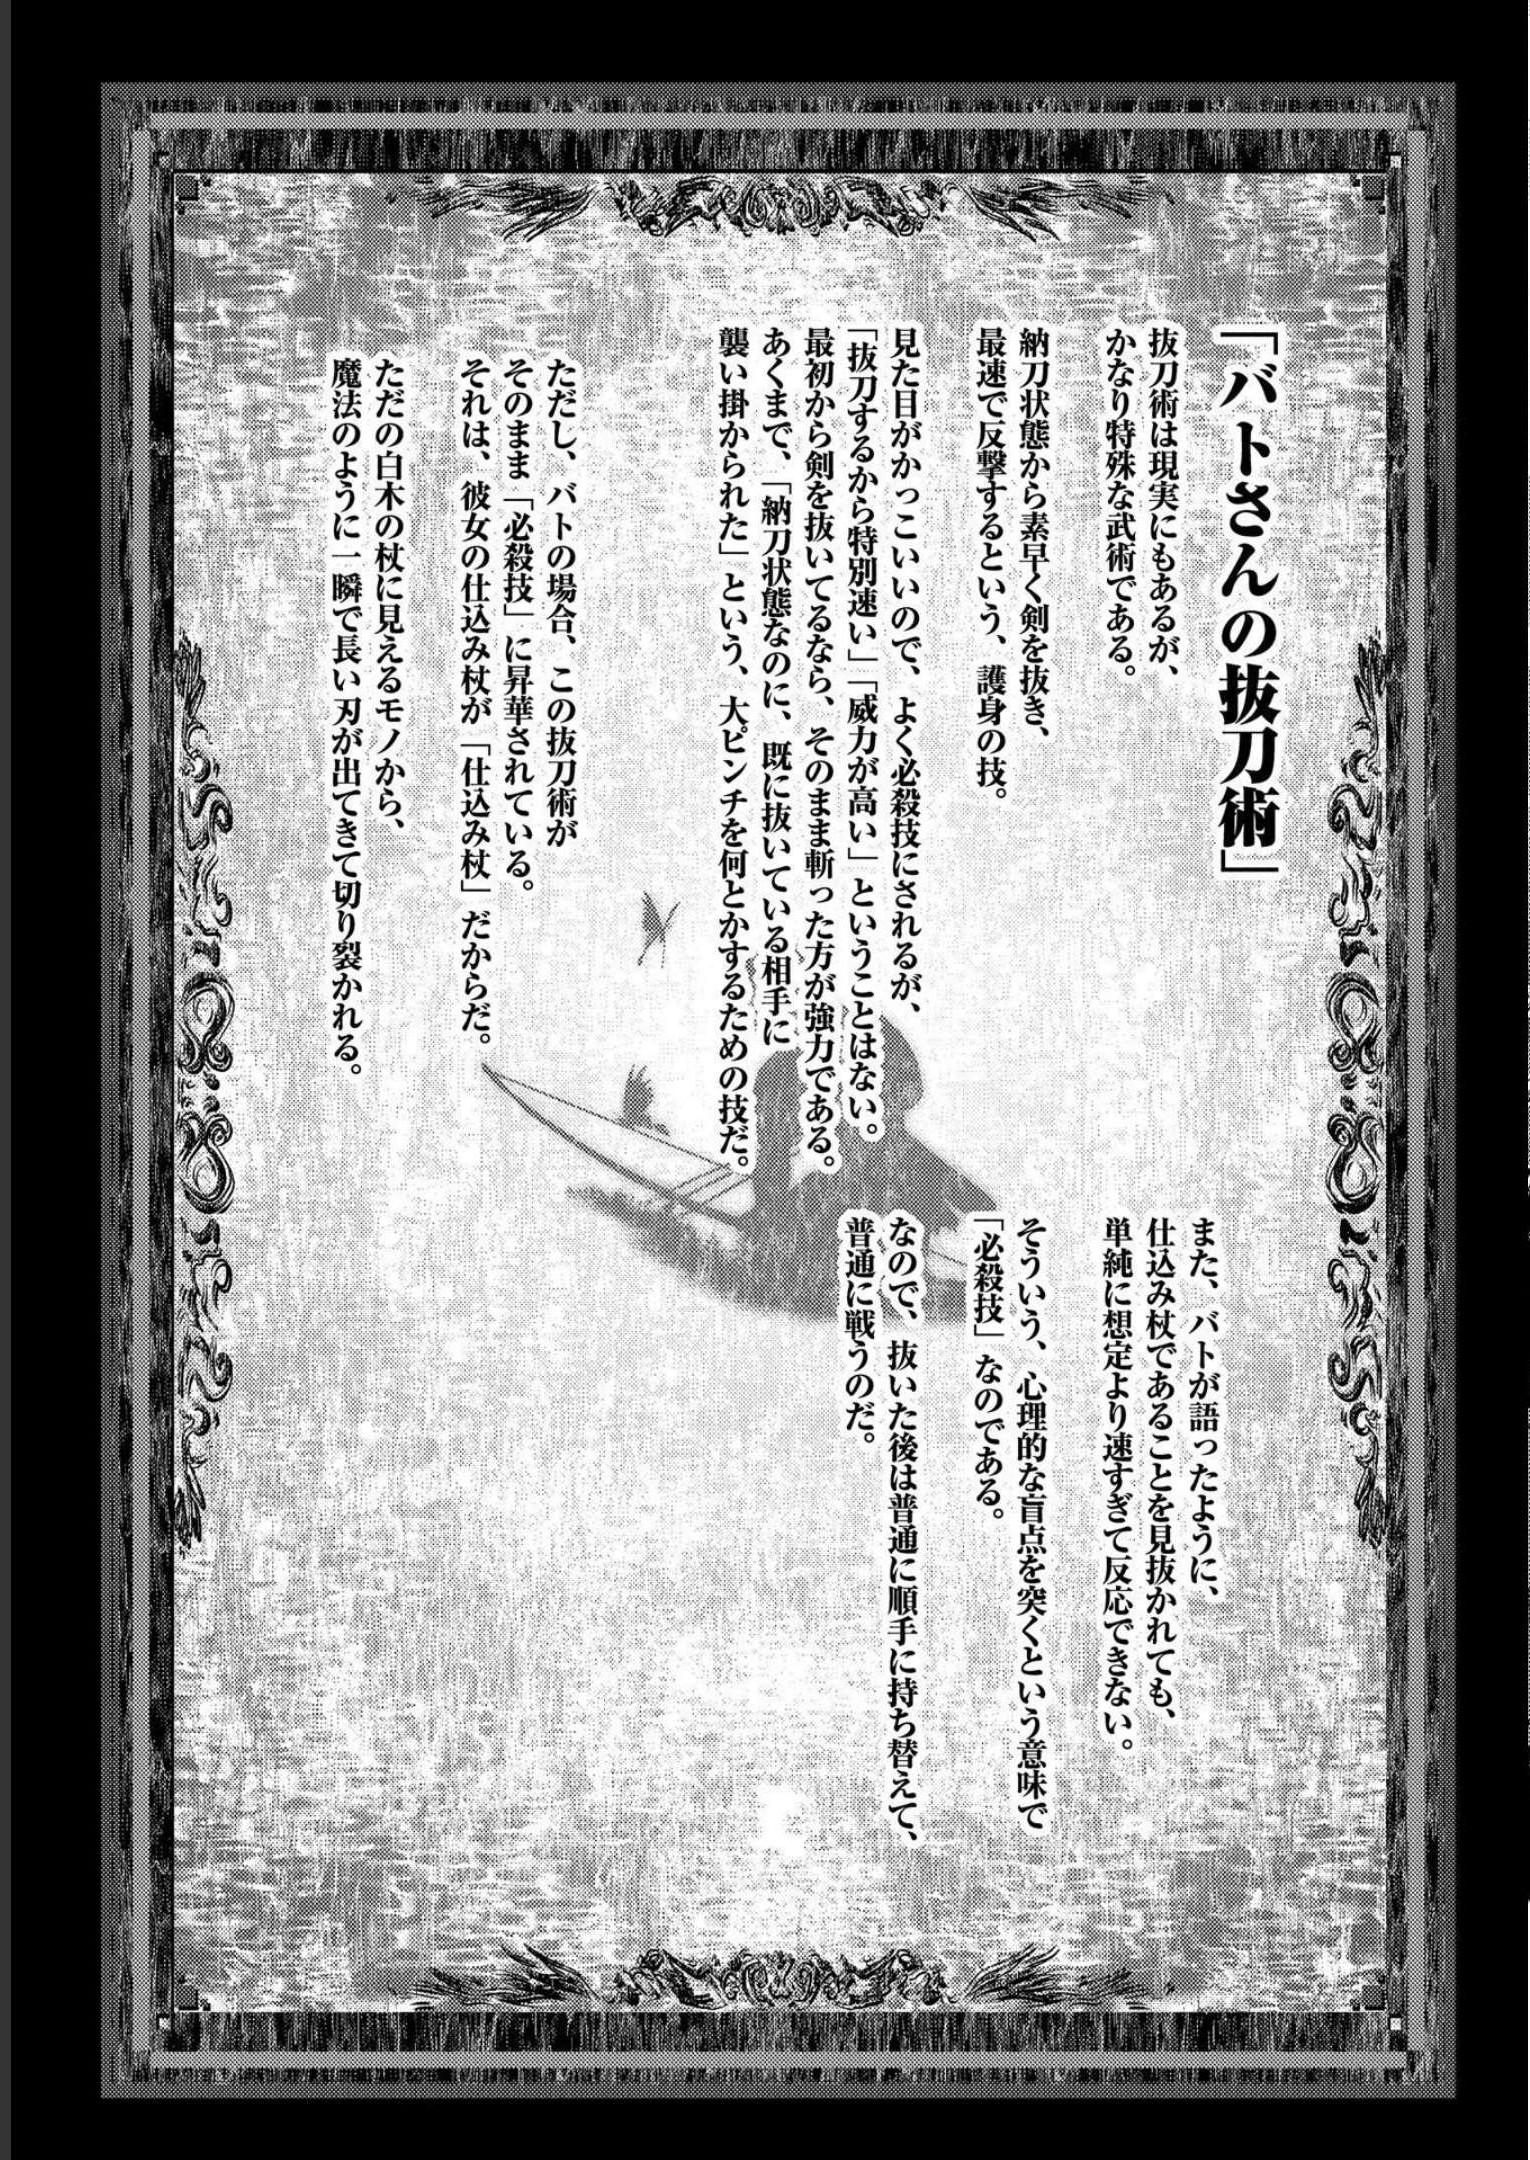 「バトさんの抜刀術」
抜刀術は現実にもあるが、
かなり特殊な武術である。
納刀状態から素早く剣を抜き、
最速で反撃するという、護身の技。
見た目がかっこいいので、よく必殺技にされるが、
「抜刀するから特別速い」「威力が高い」ということはない。
最初から剣を抜いてるなら、そのまま斬った方が強力である。
あくまで、「納刀状態なのに、既に抜いている相手に
襲い掛かられた」という、大ピンチを何とかするための技だ。
ただし、バトの場合、この抜刀術が
そのまま「必殺技」に昇華されている。
それは、彼女の仕込み杖が「仕込み杖」だからだ。
ただの白木の杖に見えるモノから、
魔法のように一瞬で長い刃が出てきて切り裂かれる。
また、バトが語ったように、
仕込み杖であることを見抜かれても、
単純に想定より速すぎて反応できない。
そういう、心理的な盲点を突くという意味で
「必殺技」なのである。
なので、抜いた後は普通に順手に持ち替えて、
普通に戦うのだ。